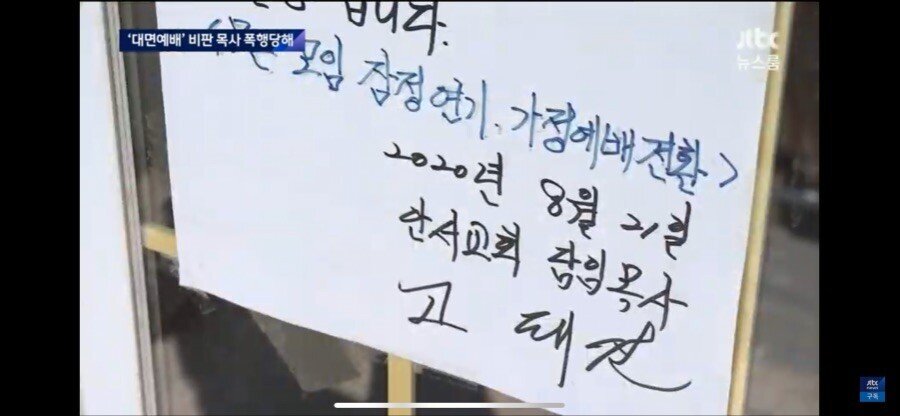 '대면예배' 비판 목사 폭행당해
jtbc
뉴스룸
니다.
모임 잠정연기, 가정예배전환>
2020년 8월 21일
안서교회 담임목사
고 태진
jtbc
news
구독